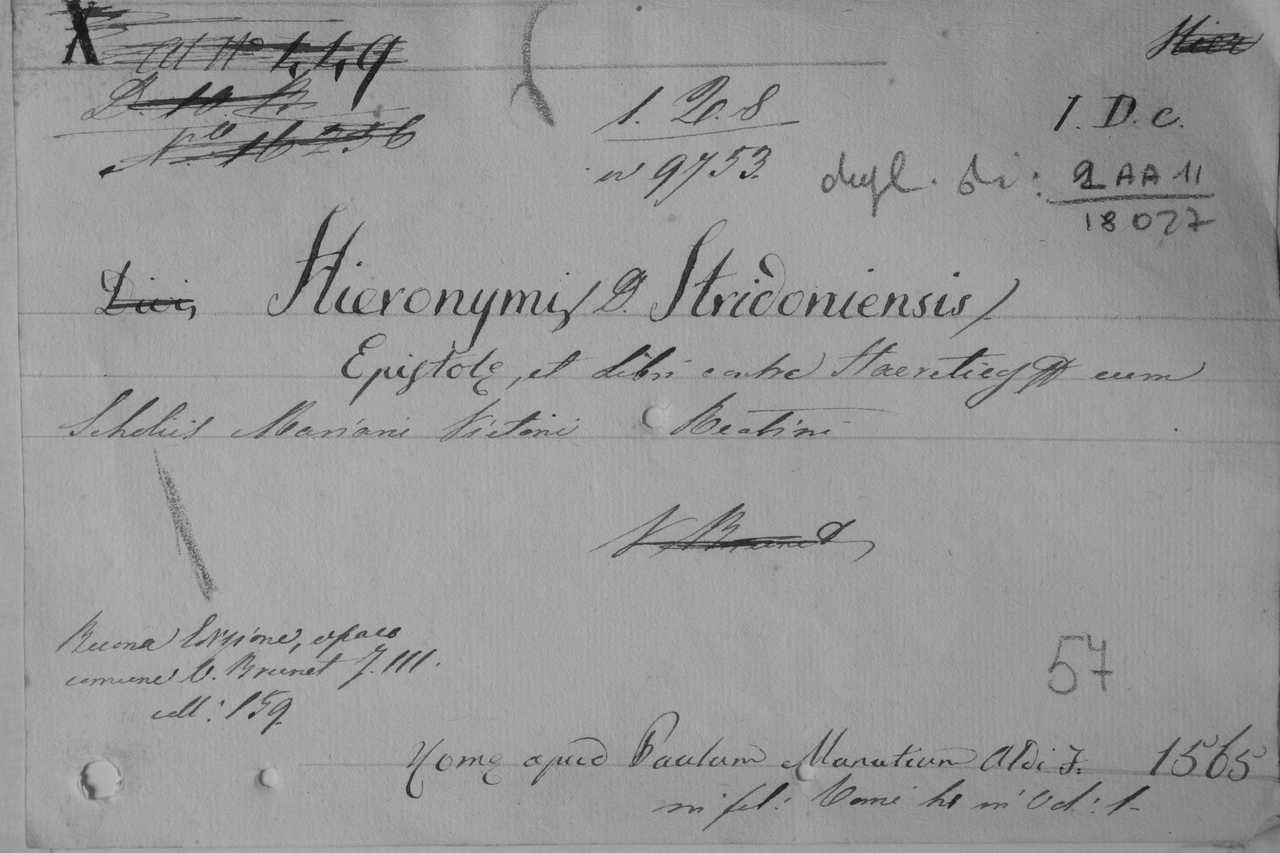 X
449
Hier
D. 10. B.
N.º 16256
I. D. 8
I. D. c.
n 9753.
dupl. di: 2 AA 11
18027
Divi Hieronymi D. Stridoniensis
Epistolę, et Libri contra Haereticos cum
Scholiis Mariani Victorii Reatini
V. Brunet
Buona Edizione, e poco
comune V. Brunet T. III.
coll: 159
57
Romę apud Paulum Manutium Aldi F. 1565
in fol: Tomi in Vol: 1.